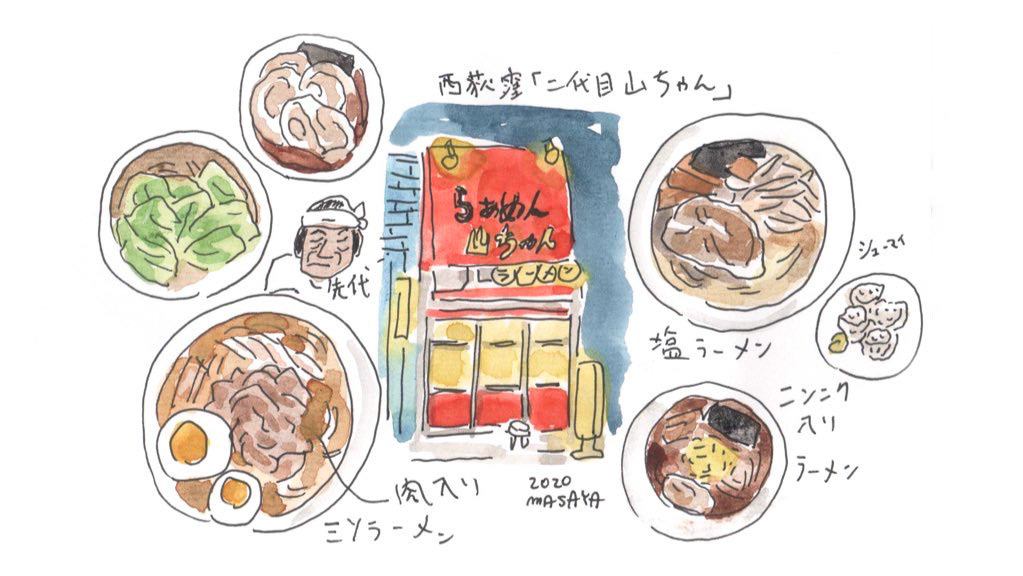 西荻窪「二代目山ちゃん」
らぁめん
山ちゃん
ラーメン
先代
シューマイ
塩ラーメン
ニンニク
入り
ラーメン
肉入り
ミソラーメン
2020
MASAYA